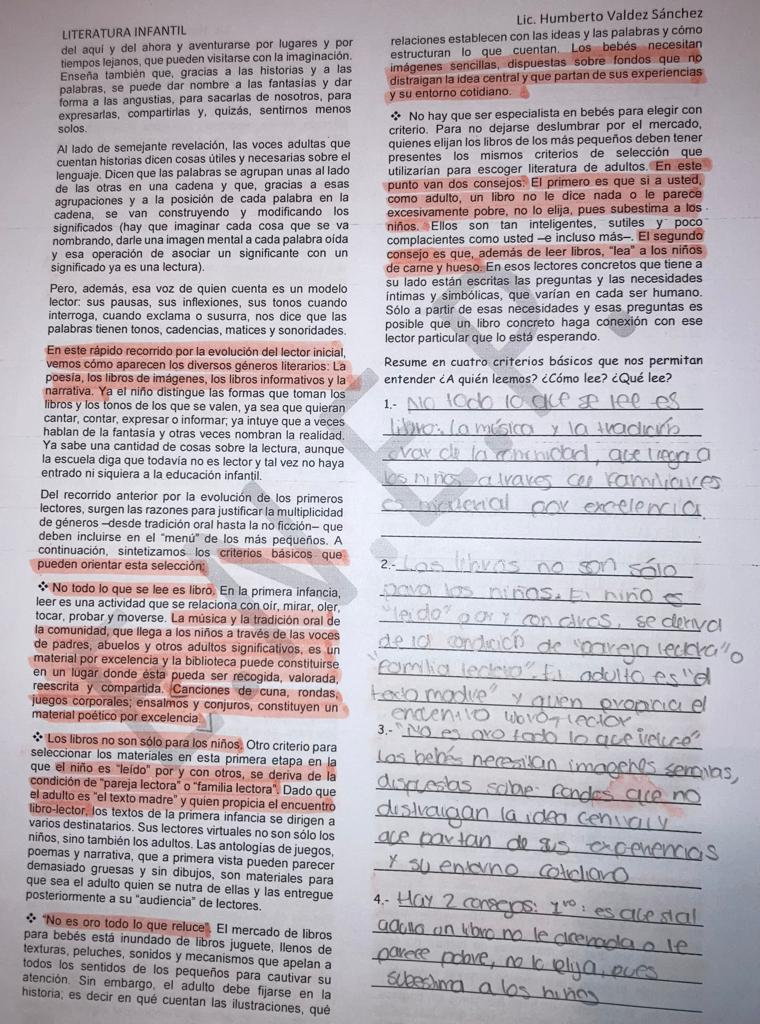 LITERATURA INFANTIL
del aquí y del ahora y aventurarse por lugares y por
tiempos lejanos, que pueden visitarse con la imaginación.
Enseña también que, gracias a las historias y a las
palabras, se puede dar nombre a las fantasías y dar
forma a las angustias, para sacarlas de nosotros, para
expresarlas, compartirlas y, quizás, sentirnos menos
solos.
Al lado de semejante revelación, las voces adultas que
cuentan historias dicen cosas útiles y necesarias sobre el
lenguaje. Dicen que las palabras se agrupan unas al lado
de las otras en una cadena y que, gracias a esas
agrupaciones y a la posición de cada palabra en la
cadena, se van construyendo y modificando los
significados (hay que imaginar cada cosa que se va
nombrando, darle una imagen mental a cada palabra oída
y esa operación de asociar un significante con un
significado ya es una lectura).
Pero, además, esa voz de quien cuenta es un modelo
lector: sus pausas, sus inflexiones, sus tonos cuando
interroga, cuando exclama o susurra, nos dice que las
palabras tienen tonos, cadencias, matices y sonoridades.
En este rápido recorrido por la evolución del lector inicial,
vemos cómo aparecen los diversos géneros literarios: La
poesía, los libros de imágenes, los libros informativos y la
narrativa. Ya el niño distingue las formas que toman los
libros y los tonos de los que se valen, ya sea que quieran
cantar, contar, expresar o informar; ya intuye que a veces
hablan de la fantasía y otras veces nombran la realidad.
Ya sabe una cantidad de cosas sobre la lectura, aunque
la escuela diga que todavía no es lector y tal vez no haya
entrado ni siquiera a la educación infantil.
Del recorrido anterior por la evolución de los primeros
lectores, surgen las razones para justificar la multiplicidad
de géneros –desde tradición oral hasta la no ficción– que
deben incluirse en el "menú" de los más pequeños. A
continuación, sintetizamos los criterios básicos que
pueden orientar esta selección:
❖ No todo lo que se lee es libro. En la primera infancia,
leer es una actividad que se relaciona con oír, mirar, oler,
tocar, probar y moverse. La música y la tradición oral de
la comunidad, que llega a los niños a través de las voces
de padres, abuelos y otros adultos significativos, es un
material por excelencia y la biblioteca puede constituirse
en un lugar donde ésta pueda ser recogida, valorada,
reescrita y compartida. Canciones de cuna, rondas,
juegos corporales; ensalmos y conjuros, constituyen un
material poético por excelencia.
❖ Los libros no son sólo para los niños. Otro criterio para
seleccionar los materiales en esta primera etapa en la
que el niño es "leído" por y con otros, se deriva de la
condición de "pareja lectora" o "familia lectora". Dado que
el adulto es "el texto madre" y quien propicia el encuentro
libro-lector, los textos de la primera infancia se dirigen a
varios destinatarios. Sus lectores virtuales no son sólo los
niños, sino también los adultos. Las antologías de juegos,
poemas y narrativa, que a primera vista pueden parecer
demasiado gruesas y sin dibujos, son materiales para
que sea el adulto quien se nutra de ellas y las entregue
posteriormente a su "audiencia" de lectores.
❖ "No es oro todo lo que reluce". El mercado de libros
para bebés está inundado de libros juguete, llenos de
texturas, peluches, sonidos y mecanismos que apelan a
todos los sentidos de los pequeños para cautivar su
atención. Sin embargo, el adulto debe fijarse en la
historia; es decir en qué cuentan las ilustraciones, qué
Lic. Humberto Valdez Sánchez
relaciones establecen con las ideas y las palabras y cómo
estructuran lo que cuentan. Los bebés necesitan
imágenes sencillas, dispuestas sobre fondos que no
distraigan la idea central y que partan de sus experiencias
y su entorno cotidiano.
❖ No hay que ser especialista en bebés para elegir con
criterio. Para no dejarse deslumbrar por el mercado,
quienes elijan los libros de los más pequeños deben tener
presentes los mismos criterios de selección que
utilizarían para escoger literatura de adultos. En este
punto van dos consejos: El primero es que si a usted,
como adulto, un libro no le dice nada o le parece
excesivamente pobre, no lo elija, pues subestima a los
niños. Ellos son tan inteligentes, sutiles y poco
complacientes como usted –e incluso más–. El segundo
consejo es que, además de leer libros, "lea" a los niños
de carne y hueso. En esos lectores concretos que tiene a
su lado están escritas las preguntas y las necesidades
íntimas y simbólicas, que varían en cada ser humano.
Sólo a partir de esas necesidades y esas preguntas es
posible que un libro concreto haga conexión con ese
lector particular que lo está esperando.
Resume en cuatro criterios básicos que nos permitan
entender ¿A quién leemos? ¿Cómo lee? ¿Qué lee?
1.- No todo lo que se lee es
libro: la música y la tradición
oral de la comunidad, que llega a
los niños a traves de familiares
es material por excelencia.
2.- Los libros no son sólo
para los niños. El niño es
"leido" por y con otros, se deriva
de la condición de "pareja lectora" o
"familia lectora". El adulto es "el
texto madre" y quien propicia el
encuentro libro-lector
3.- "No es oro todo lo que reluce"
Los bebés necesitan imagenes sencillas,
dispuestas sobre fondos que no
distraigan la idea central y
que partan de sus experiencias
y su entorno cotidiano
4.- Hay 2 consejos: 1ro: es que si al
adulto un libro no le dice nada o le
parece pobre, no lo elija, pues
subestima a los niños